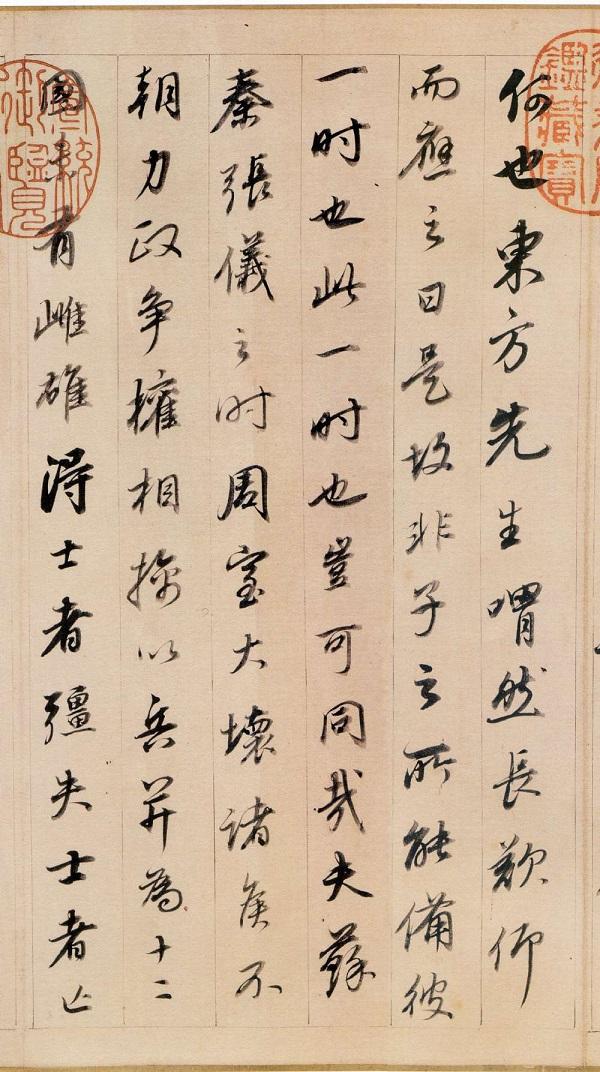 鑑藏寶
何也東方先生喟然長歎仰
而應之曰是故非子之所能備彼
一时也此一时也豈可同哉夫蘇
秦張儀之时周室大壞諸侯不
朝力政争權相擒以兵并為十二
國未有雌雄得士者彊失士者亡
宣統
御覽